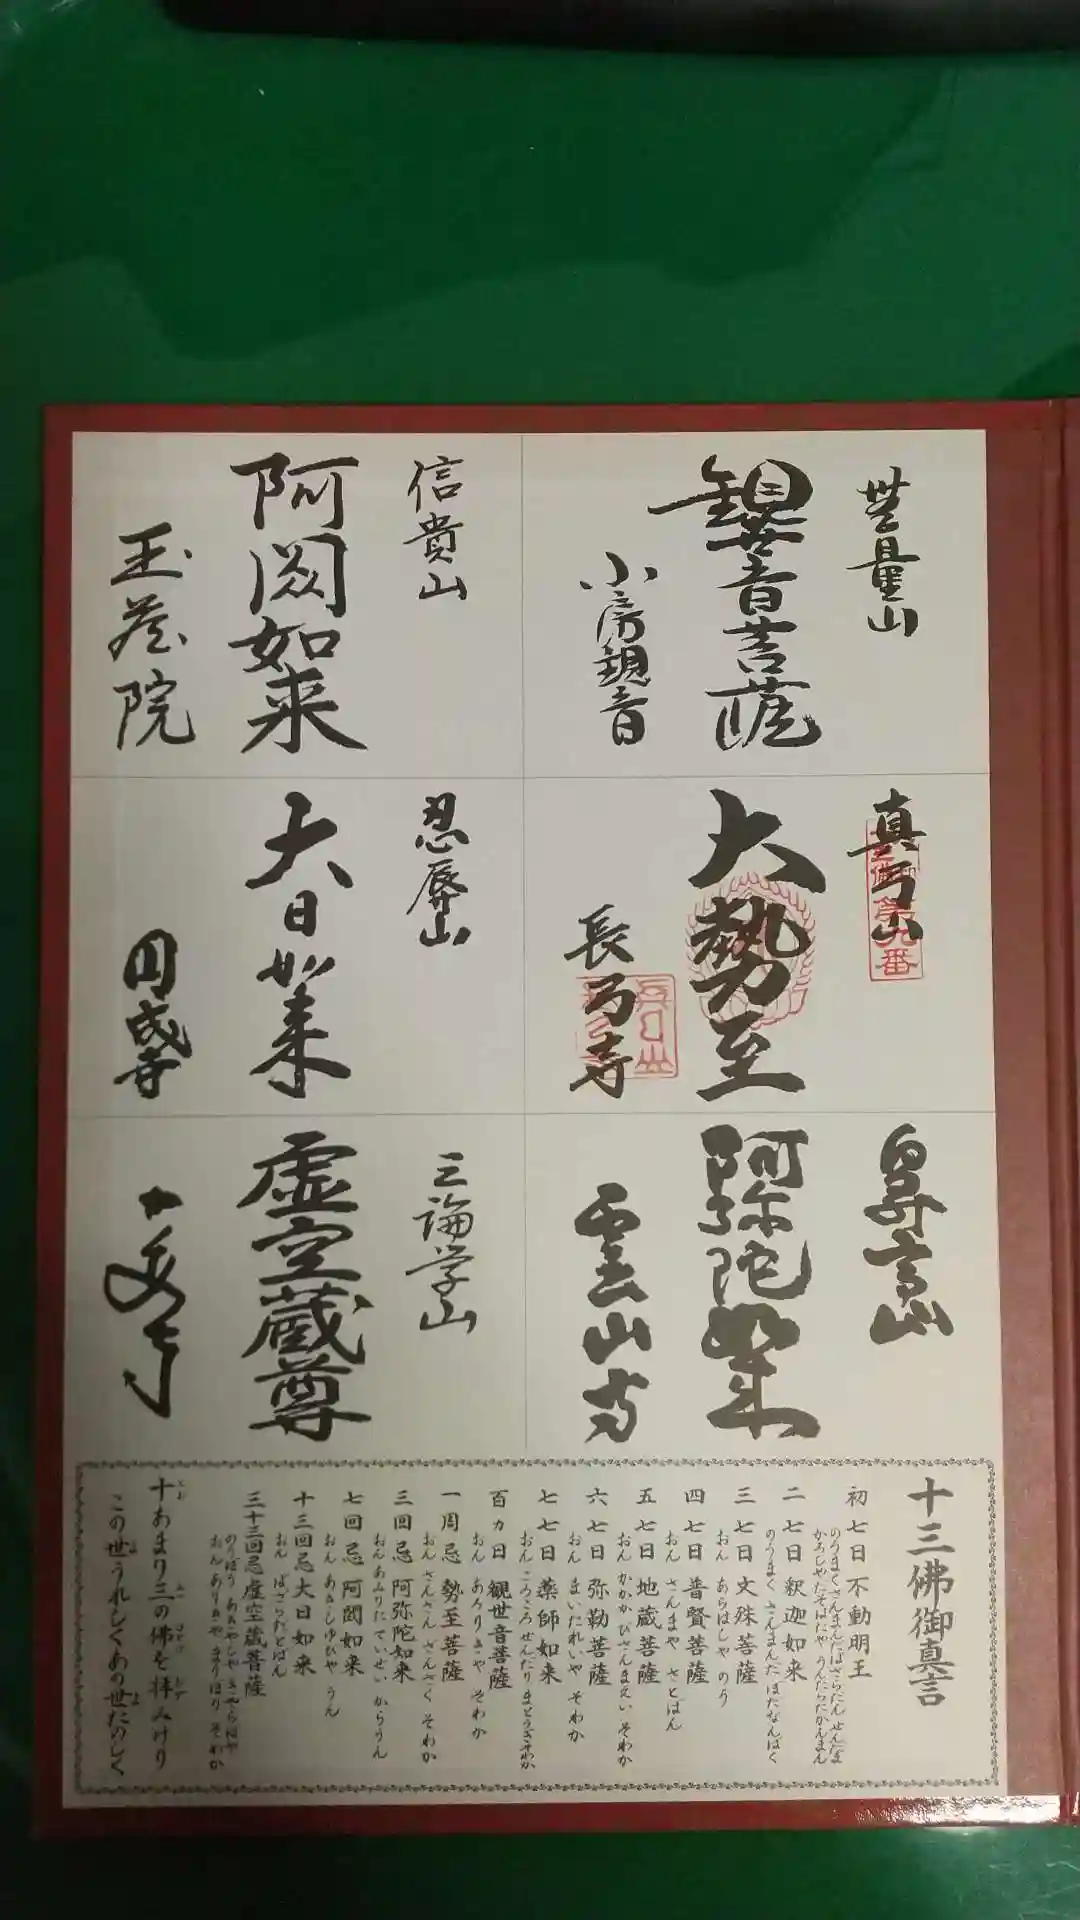 無量山
観世音菩薩
小房観音
真弓山
第九番
大勢至
長弓寺
鼻高山
阿弥陀如来
霊山寺
信貴山
阿閦如来
玉蔵院
忍辱山
大日如来
円成寺
三論学山
虚空蔵尊
十三佛御真言
初七日 不動明王
のうまくさんまんだばざらだん せんだま
かろしやだそはたや うんたらたかんまん
二七日 釈迦如来
のうまく さんまんだ ぼだなんばく
三七日 文殊菩薩
おん あらはしや のう
四七日 普賢菩薩
おん さんまや さとばん
五七日 地蔵菩薩
おん かかか びさんまえい そわか
六七日 弥勒菩薩
おん まいたれいや そわか
七七日 薬師如来
おん ころころ せんだり まとうぎそわか
百ヵ日 観世音菩薩
おん あろりきや そわか
一周忌 勢至菩薩
おん さんざん ざんさく そわか
三回忌 阿弥陀如来
おん あみりた ていせい からうん
七回忌 阿閦如来
おん あきしゆびや うん
十三回忌 大日如来
おん ばざらだとばん
三十三回忌 虚空蔵菩薩
のうぼう あきやしや きやらばや
おん ありきや まりぼり そわか
十あまり三の佛を拝みけり
この世うれしくあの世たのしく